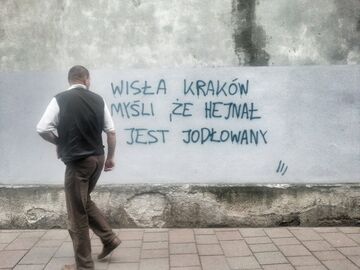 WISŁA KRAKÓW
MYŚLI, ŻE HEJNAŁ
JEST JODŁOWANY